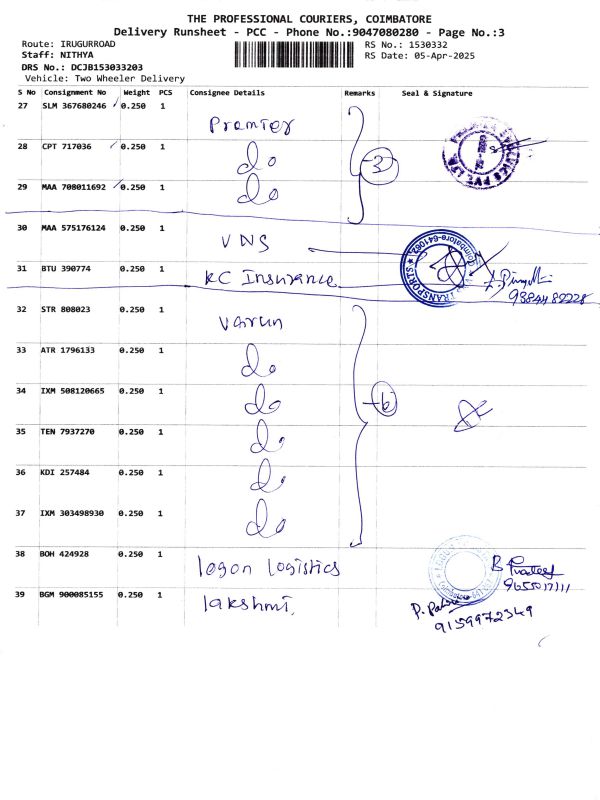 THE PROFESSIONAL COURIERS, COIMBATORE
Delivery Runsheet - PCC - Phone No.:9047080280 - Page No.:3
Route: IRUGURROAD
Staff: NITHYA
DRS No.: DCJB153033203
Vehicle: Two Wheeler Delivery
RS No.: 1530332
RS Date: 05-Apr-2025
S No Consignment No Weight PCS Consignee Details Remarks Seal & Signature
27 SLM 367680246 0.250 1 Premier
28 CPT 717036 0.250 1 do 3
29 MAA 708011692 0.250 1 do
30 MAA 575176124 0.250 1 VNS
31 BTU 390774 0.250 1 KC Insurance
32 STR 808023 0.250 1 Varun
33 ATR 1796133 0.250 1 do
34 IXM 508120665 0.250 1 do 6
35 TEN 7937270 0.250 1 do
36 KDI 257484 0.250 1 do
37 IXM 303498930 0.250 1 do
38 BOH 424928 0.250 1 logon logistics
9655017111
39 BGM 900085155 0.250 1 lakshmi.
9159972349